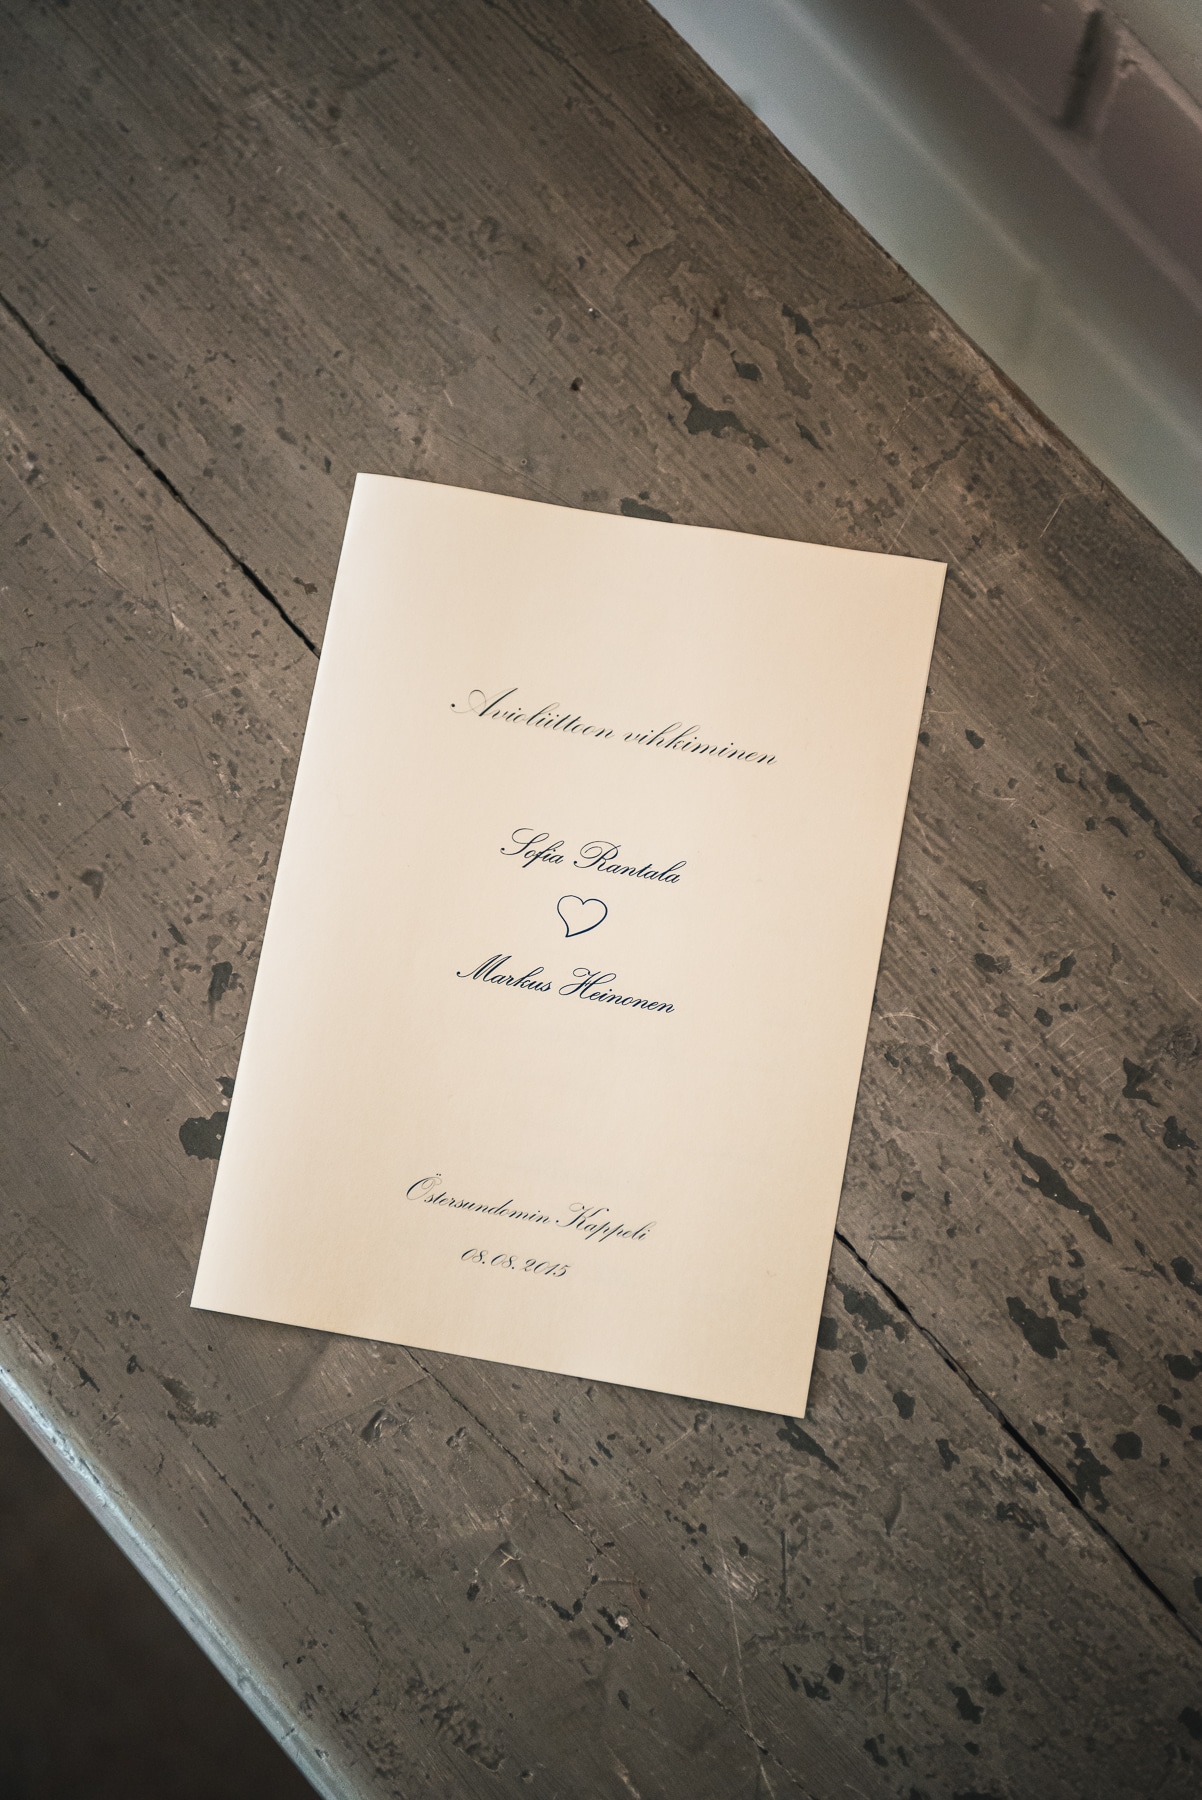 Avioliittoon vihkiminen
Sofia Rantala
Markus Heinonen
Östersundomin Kappeli
08.08.2015